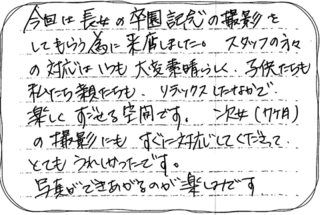 今回は長女の卒園記念の撮影を
してもらう為に来店しました。スタッフの方々
の対応はいつも大変素晴らしく、子供たちも
私たち親たちも、リラックスしたなかで
楽しくすごせる空間です。次女(7ヶ月)
の撮影にもすぐに対応してくださって、
とてもうれしかったです。
写真ができあがるのが楽しみです